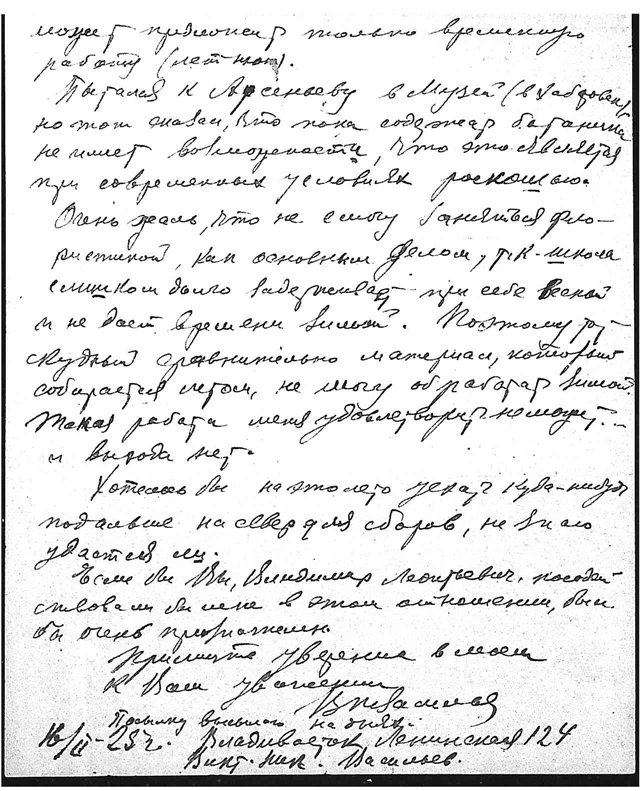 может предложит только временную
работу (летнюю).
Пытался к Арсеньеву в Музей (в Хабаровск)
но тот сказал, что пока содержат ботаника
не имеет возможности, что это является
при современных условиях роскошью.
Очень жаль, что не смогу заняться фло-
ристикой, как основным делом, т.к. школа
слишком долго задерживает при себе весной
и не дает времени зимой. Поэтому тот
скудный сравнительно материал, который
собирается летом, не могу обработат зимой.
Такая работа меня удовлетворит не может...
и выхода нет.
Хотелось бы на это лето уехат куда-нибудь
подальше на север для сборов, не знаю
удастся ли.
Если бы Вы, Владимир Леонтьевич, посодей
ствовали бы мне в этом отношении, был
бы очень признателен.
Примите уверение в моем
к Вам уважении
Посылку высылаю на днях.
16/II-28 г. Владивосток, Ленинская 124
Викт. Ник. Васильев.